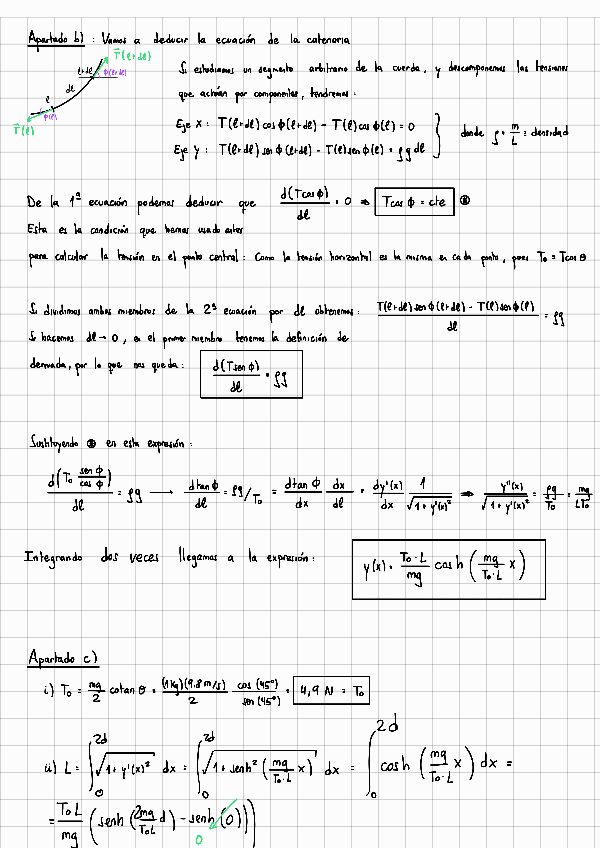 Apartado b) : Vamos a deducir la ecuación de la catenaria
T⃗(l+dl)
l+dl
ϕ(l+dl)
dl
l
ϕ(l)
T⃗(l)
Si estudiamos un segmento arbitrario de la cuerda, y descomponemos las tensiones
que actúan por componentes, tendremos:
Eje X : T(l+dl) cos ϕ(l+dl) - T(l) cos ϕ(l) = 0
Eje Y : T(l+dl) sen ϕ(l+dl) - T(l) sen ϕ(l) = ρ g dl
donde ρ = m/L = densidad
De la 1ª ecuación podemos deducir que d(T cos ϕ)/dl = 0 ⇒ T cos ϕ = cte ⊛
Esta es la condición que hemos usado antes
para calcular la tensión en el punto central: Como la tensión horizontal es la misma en cada punto, pues T₀ = T cos θ
Si dividimos ambos miembros de la 2ª ecuación por dl obtenemos: (T(l+dl) sen ϕ(l+dl) - T(l) sen ϕ(l))/dl = ρg
Si hacemos dl → 0, en el primer miembro tenemos la definición de
derivada, por lo que nos queda: d(T sen ϕ)/dl = ρg
Sustituyendo ⊛ en esta expresión:
d(T₀ sen ϕ/cos ϕ)/dl = ρg ⟶ d tan ϕ/dl = ρg/T₀ = d tan ϕ/dx dx/dl = dy'(x)/dx 1/√(1+y'(x)²) ⇒ y''(x)/√(1+y'(x)²) = ρg/T₀ = mg/LT₀
Integrando dos veces llegamos a la expresión: y(x) = T₀·L/mg cosh (mg/T₀·L x)
Apartado c)
i) T₀ = mg/2 cotan θ = (1kg)(9.8 m/s)/2 cos (45°)/sen (45°) = 4,9 N = T₀
ii) L = ∫₀^2d √(1+y'(x)²) dx = ∫₀^2d √(1+senh² (mg/T₀·L x)) dx = ∫₀^2d cosh (mg/T₀·L x) dx =
= T₀L/mg (senh (2mg/T₀L d) - senh (0)))
0